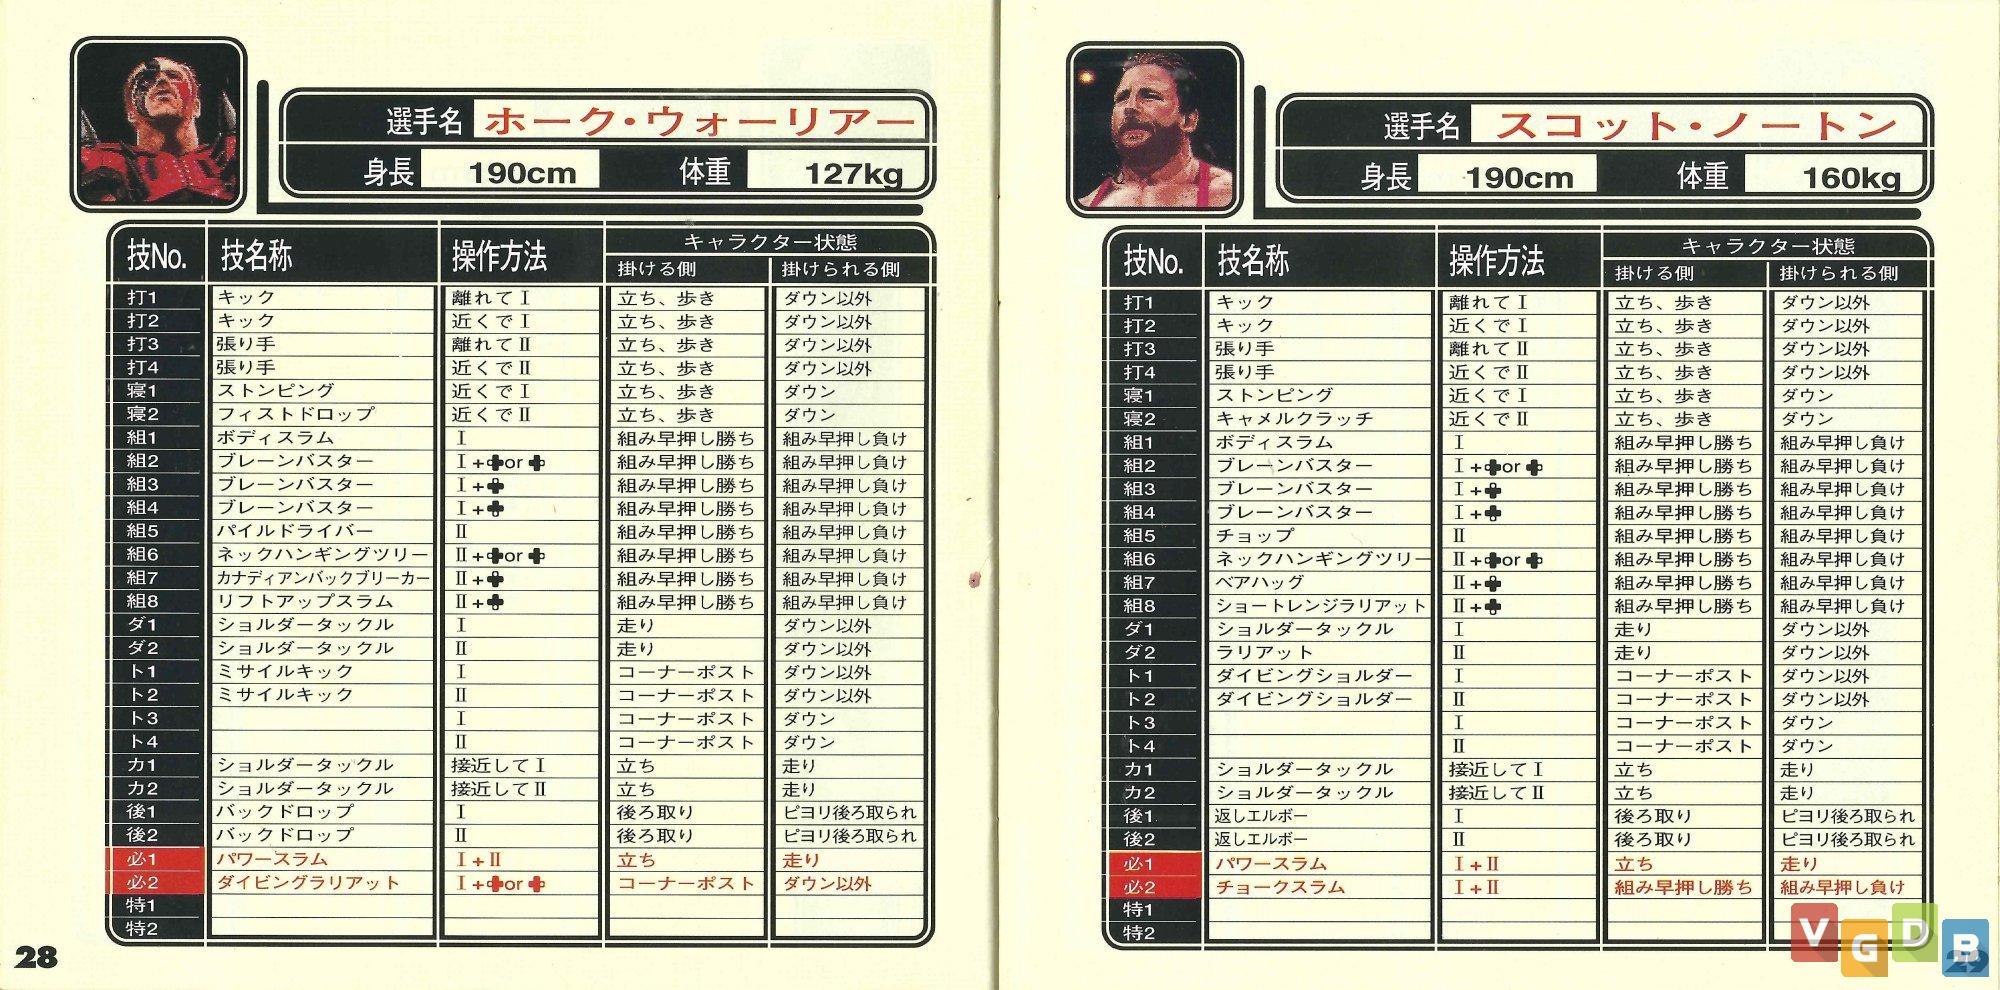 選手名 ホーク・ウォーリアー
身長 190cm 体重 127kg
技No. 技名称 操作方法 キャラクター状態
掛ける側 掛けられる側
打1 キック 離れてⅠ 立ち、歩き ダウン以外
打2 キック 近くでⅠ 立ち、歩き ダウン以外
打3 張り手 離れてⅡ 立ち、歩き ダウン以外
打4 張り手 近くでⅡ 立ち、歩き ダウン以外
寝1 ストンピング 近くでⅠ 立ち、歩き ダウン
寝2 フィストドロップ 近くでⅡ 立ち、歩き ダウン
組1 ボディスラム Ⅰ 組み早押し勝ち 組み早押し負け
組2 ブレーンバスター Ⅰ+✚or✚ 組み早押し勝ち 組み早押し負け
組3 ブレーンバスター Ⅰ+✚ 組み早押し勝ち 組み早押し負け
組4 ブレーンバスター Ⅰ+✚ 組み早押し勝ち 組み早押し負け
組5 パイルドライバー Ⅱ 組み早押し勝ち 組み早押し負け
組6 ネックハンギングツリー Ⅱ+✚or✚ 組み早押し勝ち 組み早押し負け
組7 カナディアンバックブリーカー Ⅱ+✚ 組み早押し勝ち 組み早押し負け
組8 リフトアップスラム Ⅱ+✚ 組み早押し勝ち 組み早押し負け
ダ1 ショルダータックル Ⅰ 走り ダウン以外
ダ2 ショルダータックル Ⅱ 走り ダウン以外
ト1 ミサイルキック Ⅰ コーナーポスト ダウン以外
ト2 ミサイルキック Ⅱ コーナーポスト ダウン以外
ト3 Ⅰ コーナーポスト ダウン
ト4 Ⅱ コーナーポスト ダウン
カ1 ショルダータックル 接近してⅠ 立ち 走り
カ2 ショルダータックル 接近してⅡ 立ち 走り
後1 バックドロップ Ⅰ 後ろ取り ピヨリ後ろ取られ
後2 バックドロップ Ⅱ 後ろ取り ピヨリ後ろ取られ
必1 パワースラム Ⅰ+Ⅱ 立ち 走り
必2 ダイビングラリアット Ⅰ+✚or✚ コーナーポスト ダウン以外
特1
特2
28
選手名 スコット・ノートン
身長 190cm 体重 160kg
技No. 技名称 操作方法 キャラクター状態
掛ける側 掛けられる側
打1 キック 離れてⅠ 立ち、歩き ダウン以外
打2 キック 近くでⅠ 立ち、歩き ダウン以外
打3 張り手 離れてⅡ 立ち、歩き ダウン以外
打4 張り手 近くでⅡ 立ち、歩き ダウン以外
寝1 ストンピング 近くでⅠ 立ち、歩き ダウン
寝2 キャメルクラッチ 近くでⅡ 立ち、歩き ダウン
組1 ボディスラム Ⅰ 組み早押し勝ち 組み早押し負け
組2 ブレーンバスター Ⅰ+✚or✚ 組み早押し勝ち 組み早押し負け
組3 ブレーンバスター Ⅰ+✚ 組み早押し勝ち 組み早押し負け
組4 ブレーンバスター Ⅰ+✚ 組み早押し勝ち 組み早押し負け
組5 チョップ Ⅱ 組み早押し勝ち 組み早押し負け
組6 ネックハンギングツリー Ⅱ+✚or✚ 組み早押し勝ち 組み早押し負け
組7 ベアハッグ Ⅱ+✚ 組み早押し勝ち 組み早押し負け
組8 ショートレンジラリアット Ⅱ+✚ 組み早押し勝ち 組み早押し負け
ダ1 ショルダータックル Ⅰ 走り ダウン以外
ダ2 ラリアット Ⅱ 走り ダウン以外
ト1 ダイビングショルダー Ⅰ コーナーポスト ダウン以外
ト2 ダイビングショルダー Ⅱ コーナーポスト ダウン以外
ト3 Ⅰ コーナーポスト ダウン
ト4 Ⅱ コーナーポスト ダウン
カ1 ショルダータックル 接近してⅠ 立ち 走り
カ2 ショルダータックル 接近してⅡ 立ち 走り
後1 返しエルボー Ⅰ 後ろ取り ピヨリ後ろ取られ
後2 返しエルボー Ⅱ 後ろ取り ピヨリ後ろ取られ
必1 パワースラム Ⅰ+Ⅱ 立ち 走り
必2 チョークスラム Ⅰ+Ⅱ 組み早押し勝ち 組み早押し負け
特1
特2
29
VGDB